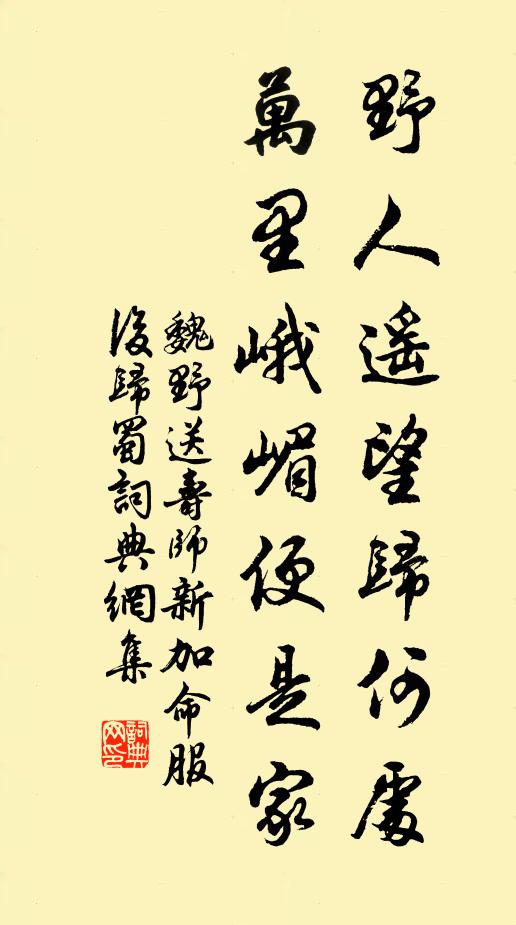 野人遥望歸何處
萬里峨嵋便是家
魏野送壽師新加命服
後歸蜀詞典網集
詞典网印